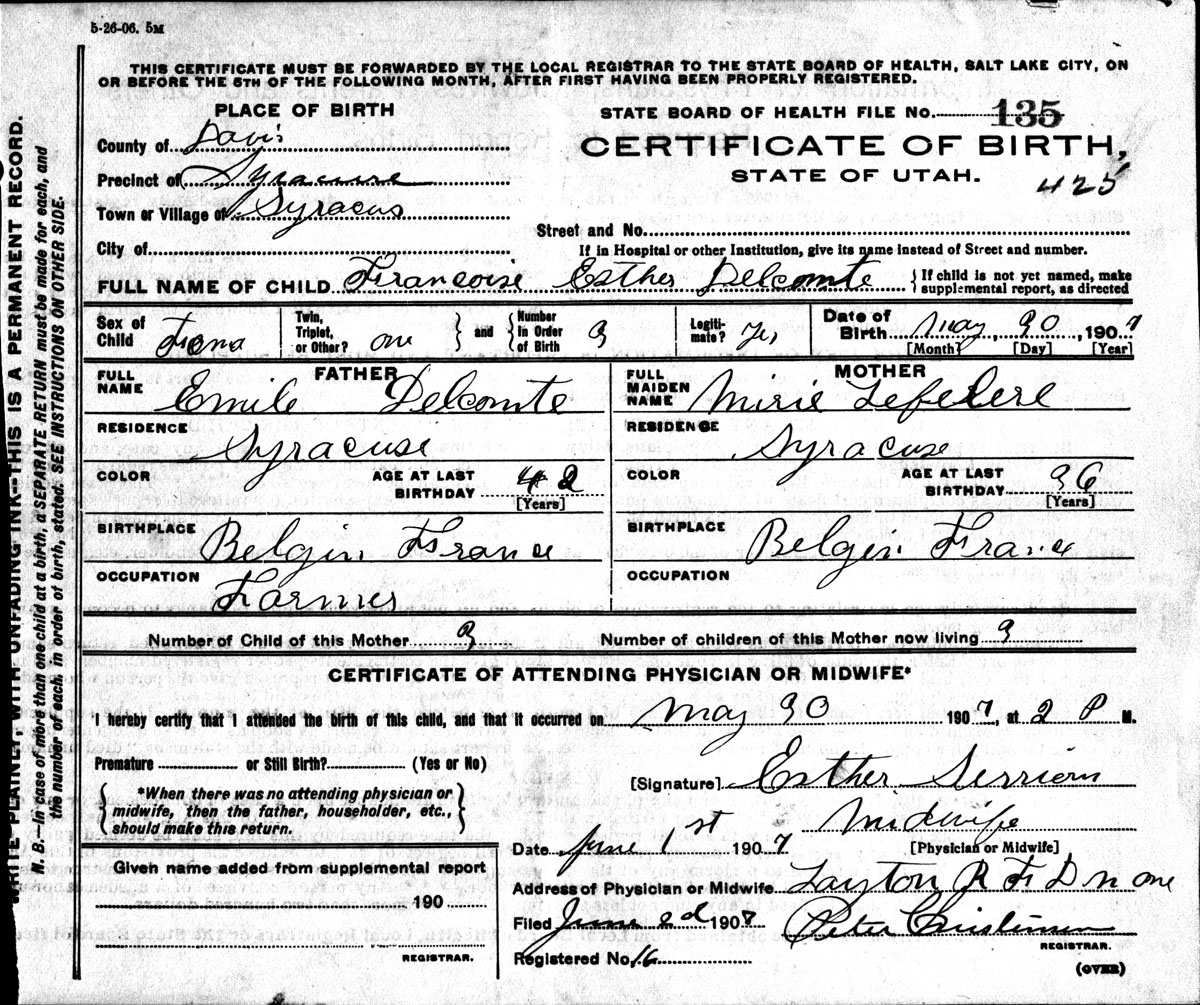 5-26-06. 5M
THIS CERTIFICATE MUST BE FORWARDED BY THE LOCAL REGISTRAR TO THE STATE BOARD OF HEALTH, SALT LAKE CITY, ON
OR BEFORE THE 5TH OF THE FOLLOWING MONTH, AFTER FIRST HAVING BEEN PROPERLY REGISTERED.
PLACE OF BIRTH
STATE BOARD OF HEALTH FILE No. 135
County of Davis
CERTIFICATE OF BIRTH,
Precinct of Syracuse
STATE OF UTAH.
425
Town or Village of Syracus
Street and No.
City of
If in Hospital or other Institution, give its name instead of Street and number.
FULL NAME OF CHILD Francoise Esther Delcomte
{If child is not yet named, make
supplemental report, as directed
Sex of Child Fema
Twin, Triplet, or Other? one } and { Number In Order of Birth 3
Legitimate? Yes
Date of Birth May 30, 1907
[Month] [Day] [Year]
FATHER
FULL NAME Emile Delcomte
MOTHER
FULL MAIDEN NAME Mirie Lefebere
RESIDENCE Syracuse
RESIDENCE Syracuse
COLOR
AGE AT LAST BIRTHDAY 42
[Years]
COLOR
AGE AT LAST BIRTHDAY 36
[Years]
BIRTHPLACE Belgin France
BIRTHPLACE Belgin France
OCCUPATION Farmer
OCCUPATION
Number of Child of this Mother 3
Number of children of this Mother now living 3
CERTIFICATE OF ATTENDING PHYSICIAN OR MIDWIFE*
I hereby certify that I attended the birth of this child, and that it occurred on May 30 1907, at 2 P M.
Premature or Still Birth? (Yes or No)
[Signature] Esther
{ *When there was no attending physician or
midwife, then the father, householder, etc.,
should make this return. }
Midwife
Date June 1st 1907
[Physician or Midwife]
Given name added from supplemental report
Address of Physician or Midwife Layton R F D n one
190
Filed June 2d 1907 Peter Christensen
REGISTRAR.
REGISTRAR.
Registered No. 16
(OVER)
WRITE PLAINLY, WITH UNFADING INK—THIS IS A PERMANENT RECORD.
N. B.—In case of more than one child at a birth, a SEPARATE RETURN must be made for each, and
the number of each, in order of birth, stated. SEE INSTRUCTIONS ON OTHER SIDE.